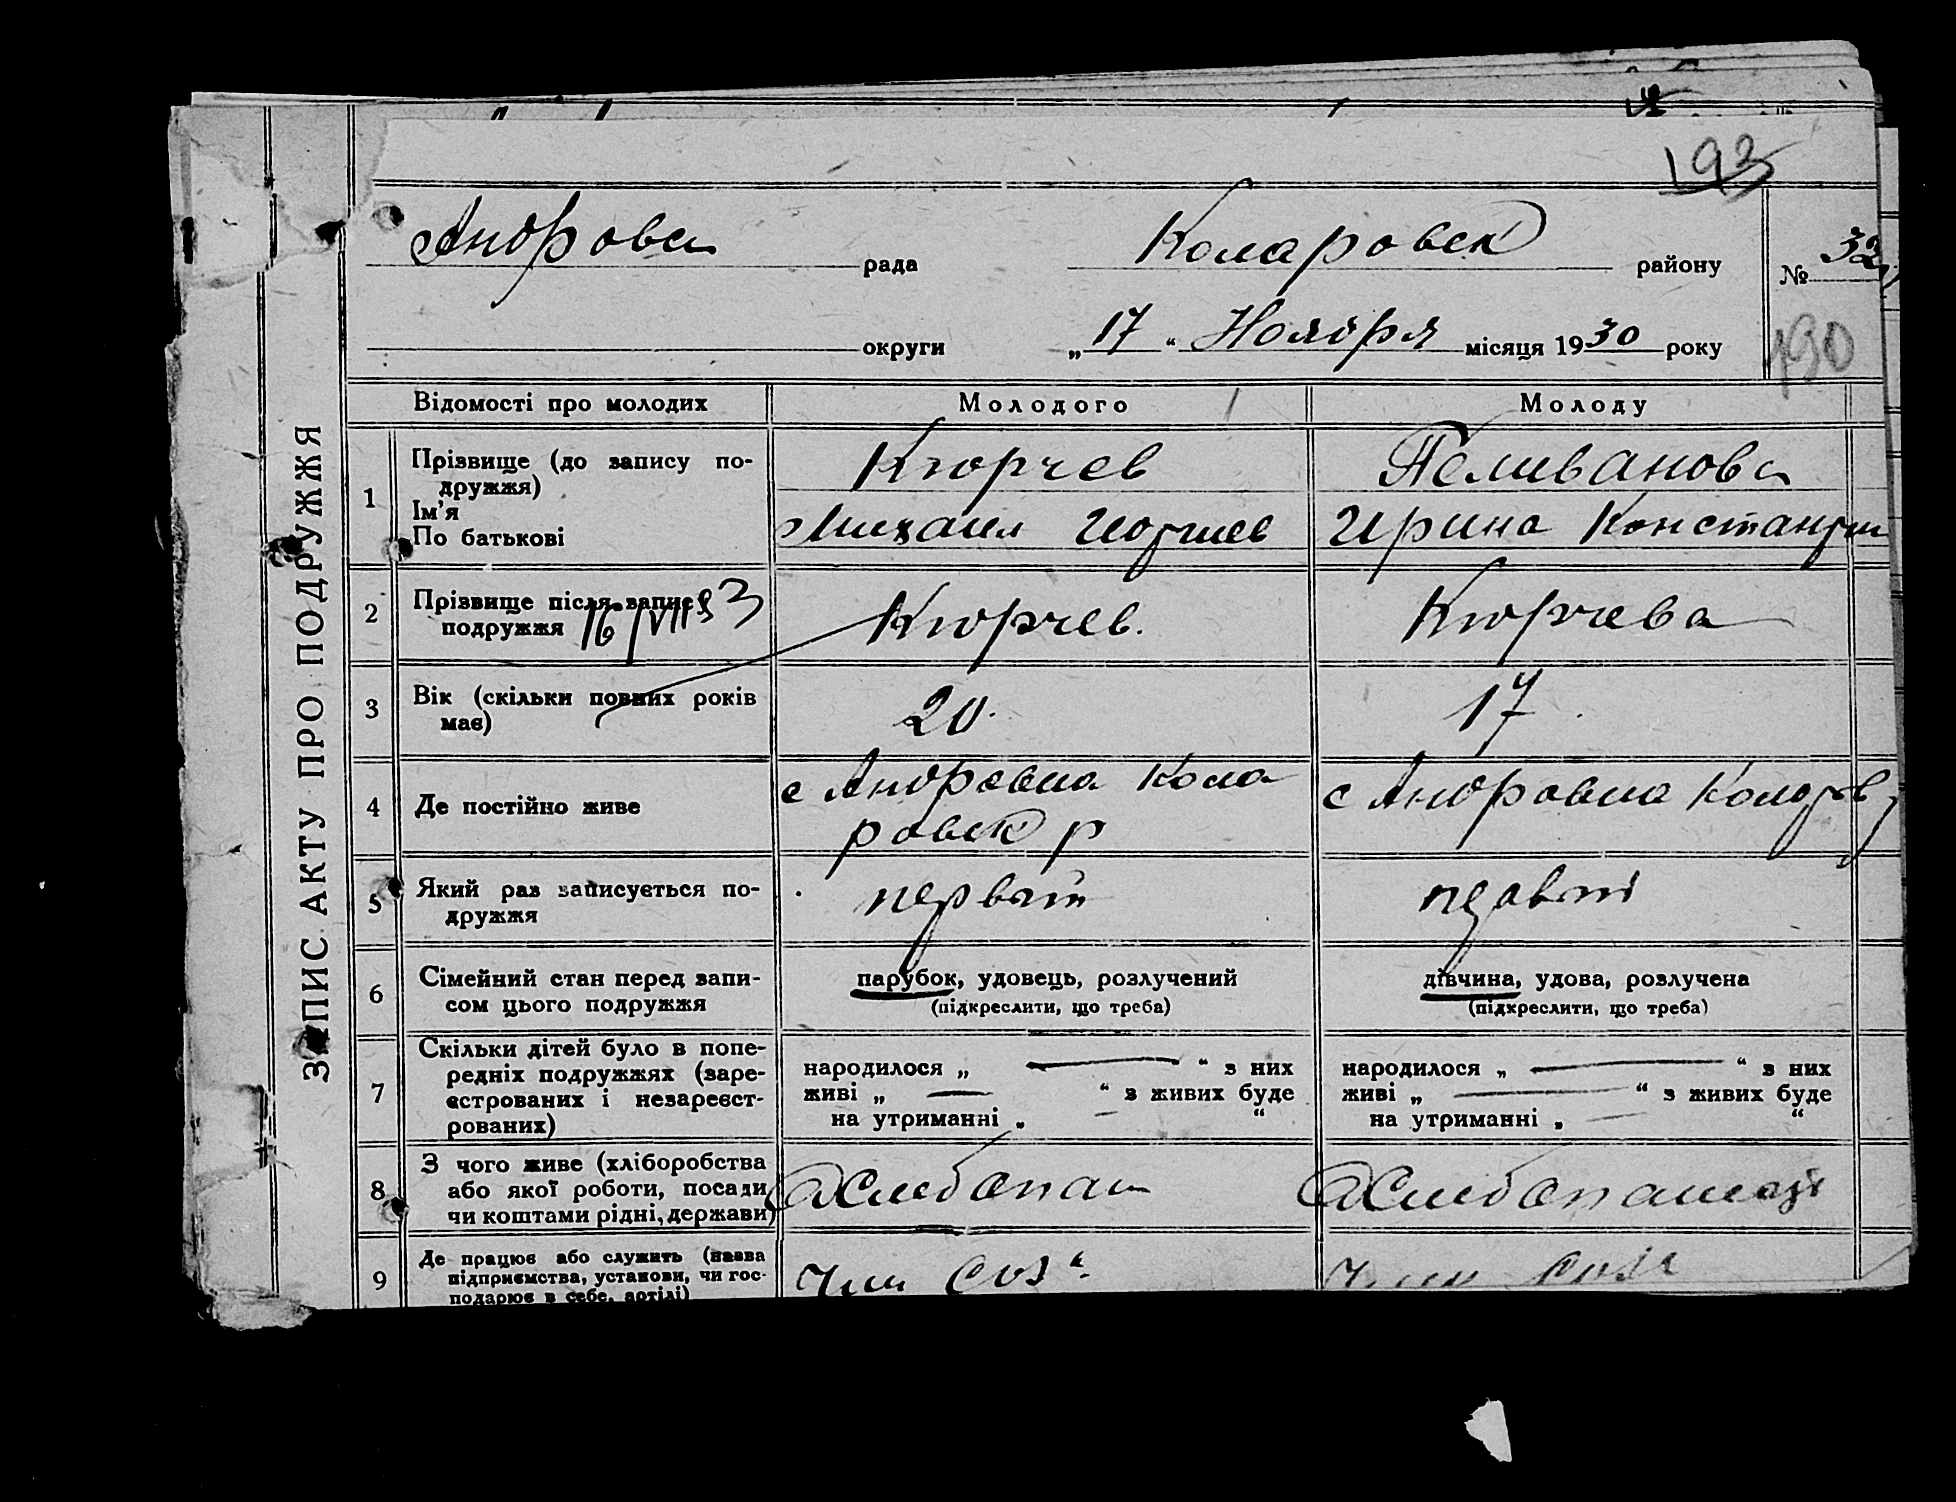 193
Андровск рада Коларовск району № 32
округи „17“ Ноября місяця 1930 року 190
ЗАПИС АКТУ ПРО ПОДРУЖЖЯ
Відомості про молодих Молодого Молоду
1 Прізвище (до запису по- Кюрчев Пеливанова
дружжя)
Ім’я
По батькові Михаил Георгиев Ирина Константин
2 Прізвище після запису Кюрчев. Кюрчева
подружжя 16/VII 33
3 Вік (скільки повних років 20. 17.
має)
4 Де постійно живе с Андровка Кола с Андровка Коларов
ровск р
5 Який раз записується по- первый первый
дружжя
6 Сімейний стан перед запи- парубок, удовець, розлучений дівчина, удова, розлучена
сом цього подружжя (підкреслити, що треба) (підкреслити, що треба)
7 Скільки дітей було в попе-
редніх подружжях (заре- народилося „ — “ з них народилося „ — “ з них
єстрованих і незареєст- живі „ — “ з живих буде живі „ — “ з живих буде
рованих) на утриманні „ — “ на утриманні „ — “
8 З чого живе (хліборобства
або якої роботи, посади
чи коштами рідні, держави)
9 Де працює або служить (назва
підприємства, установи, чи гос- Член Соза Член Соза
подарює в себе, артілі)